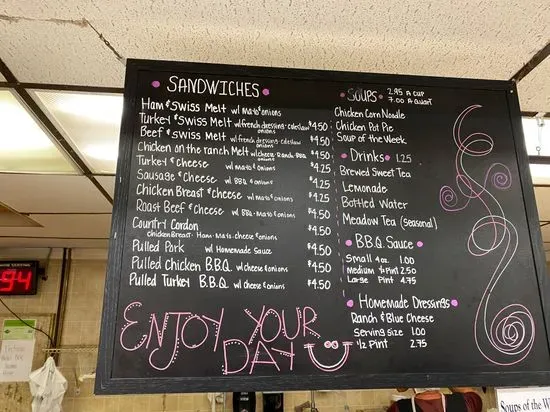 SANDWICHES
Ham & Swiss Melt w/ mato & onions
Turkey & Swiss Melt w/ french dressing - coleslaw onions $4.50
Beef & Swiss Melt w/ french dressing - coleslaw onions $4.50
Chicken on the ranch Melt w/ cheese - Ranch - BBQ $4.50
Turkey & Cheese w/ mato & onions $4.25
Sausage & Cheese w/ BBQ & onions $4.25
Chicken Breast & Cheese w/ mato & onions $4.25
Roast Beef & Cheese w/ BBQ - Mato & onions $4.50
Country Cordon
chicken Breast - Ham - Mato - cheese & onions $4.50
Pulled Pork w/ Homemade Sauce $4.50
Pulled Chicken B.B.Q w/ cheese & onions $4.50
Pulled Turkey B.B.Q w/ cheese & onions $4.50
ENJOY YOUR
DAY
SOUPS 2.95 A CUP
7.00 A QUART
Chicken Corn Noodle
Chicken Pot Pie
Soup of the Week
Drinks 1.25
Brewed Sweet Tea
Lemonade
Bottled Water
Meadow Tea (seasonal)
B.B.Q. Sauce
Small 4oz 1.00
Medium ½ Pint 2.50
Large Pint 4.75
Homemade Dressings
Ranch & Blue Cheese
Serving size 1.00
½ Pint 2.75
94
Soups of the W